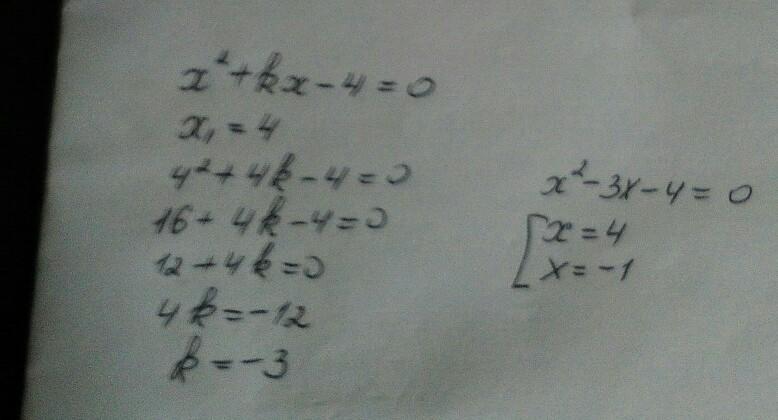 x² + kx - 4 = 0
x₁ = 4
4² + 4k - 4 = 0
16 + 4k - 4 = 0
12 + 4k = 0
4k = -12
k = -3
x² - 3x - 4 = 0
[x = 4
x = -1